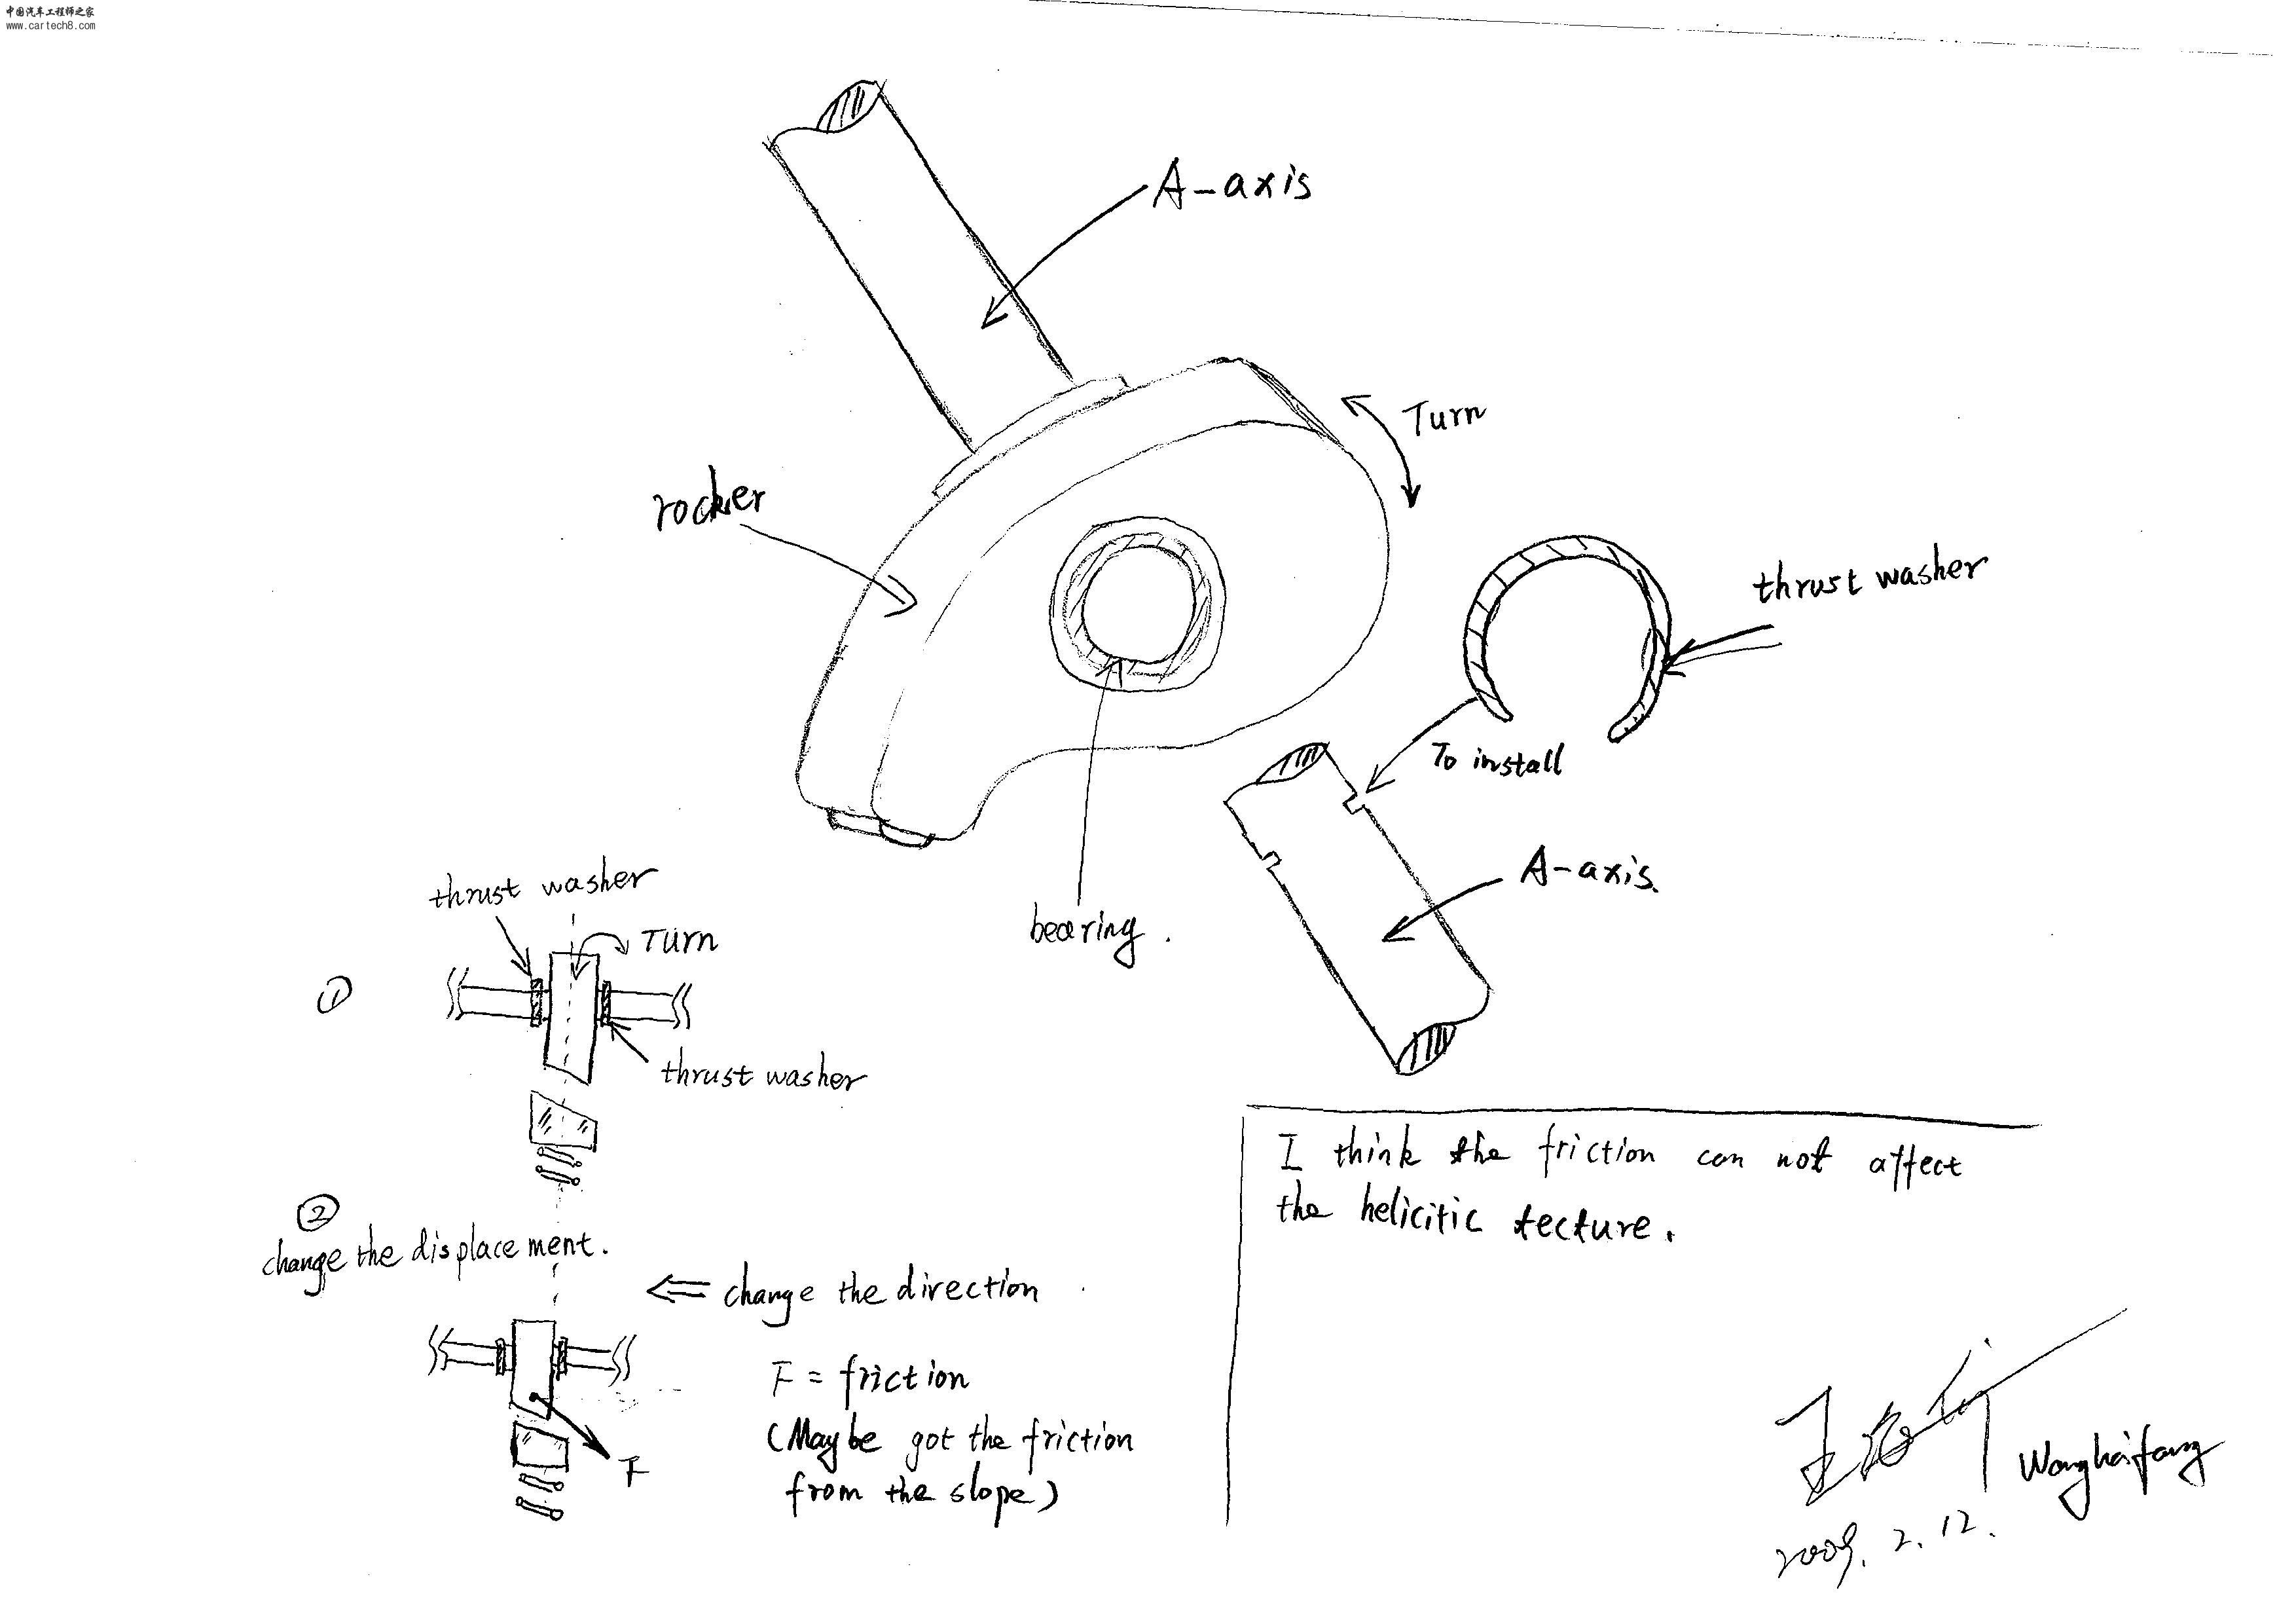 中国汽车工程师之家
www.cartech8.com
A-axis
Turn
rocker
thrust washer
To install
A-axis.
bearing.
thrust washer
Turn
①
thrust washer
②
change the displacement.
change the direction
F = friction
(Maybe got the friction
from the slope)
F
I think the friction can not affect
the helicitic tecture.
Wanghaifang
2009.2.12.